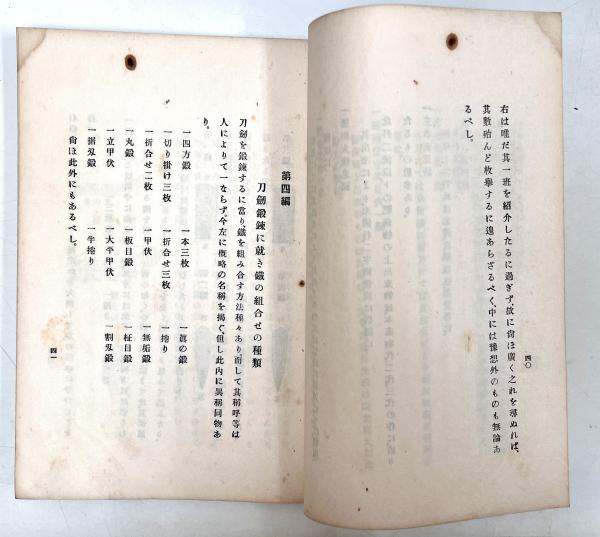 右は唯だ其一班を紹介したるに過ぎず、故に尙ほ廣く之れを尋ぬれば、
其數殆んど枚擧するに遑あらざるべく、中には豫想外のものも無論あ
るべし。
四〇
第四編
刀劍鍛錬に就き鐵の組合せの種類
刀劍を鍛錬するに當り鐵を組み合す方法種々あり而して其稱呼等は
人によりて一ならず。今左に槪略の名稱を揭ぐ、但し此內に異稱同物あ
り。
一四方鍛 一本三枚 一眞の鍛
一切り掛け三枚 一折合せ三枚 一捲り
一折合せ二枚 一甲伏 一無垢鍛
一丸鍛 一板目鍛 一柾目鍛
一立甲伏 一大平甲伏 一割刄鍛
一据刄鍛 一半捲り
尙ほ此外にもあるべし。
四一